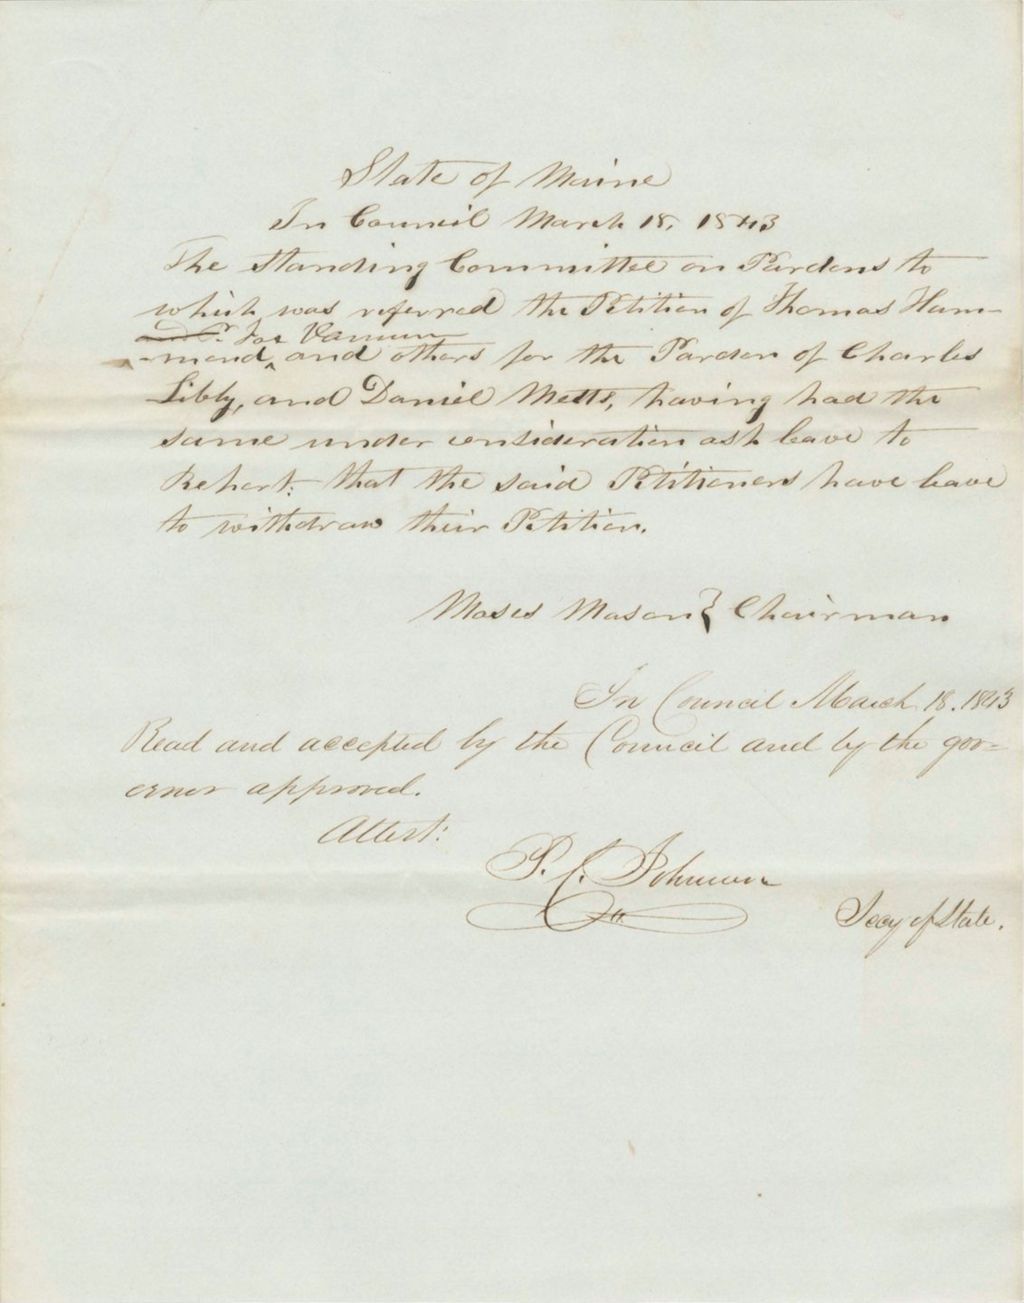 State of Maine
In Council March 18, 1843
The Standing Committee on Pardons to
which was referred the Petition of Thomas Ham-
Jos Varnum
-mond, and others for the Pardon of Charles
Libby, and Daniel having had the
same under consideration ask leave to
Report: that the said Petitioners have leave
to withdraw their Petition.
Moses Mason } Chairman
In Council March 18. 1843
Read and accepted by the Council and by the gov-
ernor approved.
Attest:
P. C. Johnson
Secy of State.